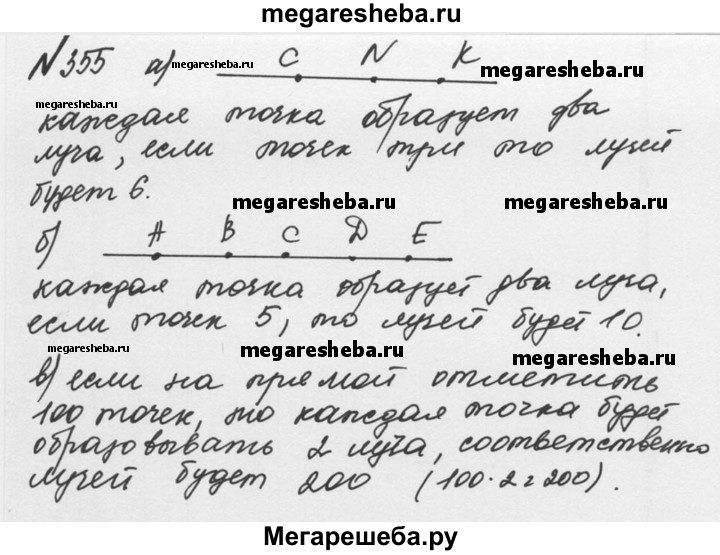 megaresheba.ru
№355 а) megaresheba.ru C N K megaresheba.ru
megaresheba.ru
каждая точка образует два
луча, если точек три то лучей
будет 6. megaresheba.ru megaresheba.ru
б) A B C D E
каждая точка образует два луча,
если точек 5, то лучей будет 10.
megaresheba.ru megaresheba.ru megaresheba.ru
в) если на прямой отметить
100 точек, то каждая точка будет
образовывать 2 луча, соответственно
лучей будет 200 (100·2=200).
Мегарешеба.ру